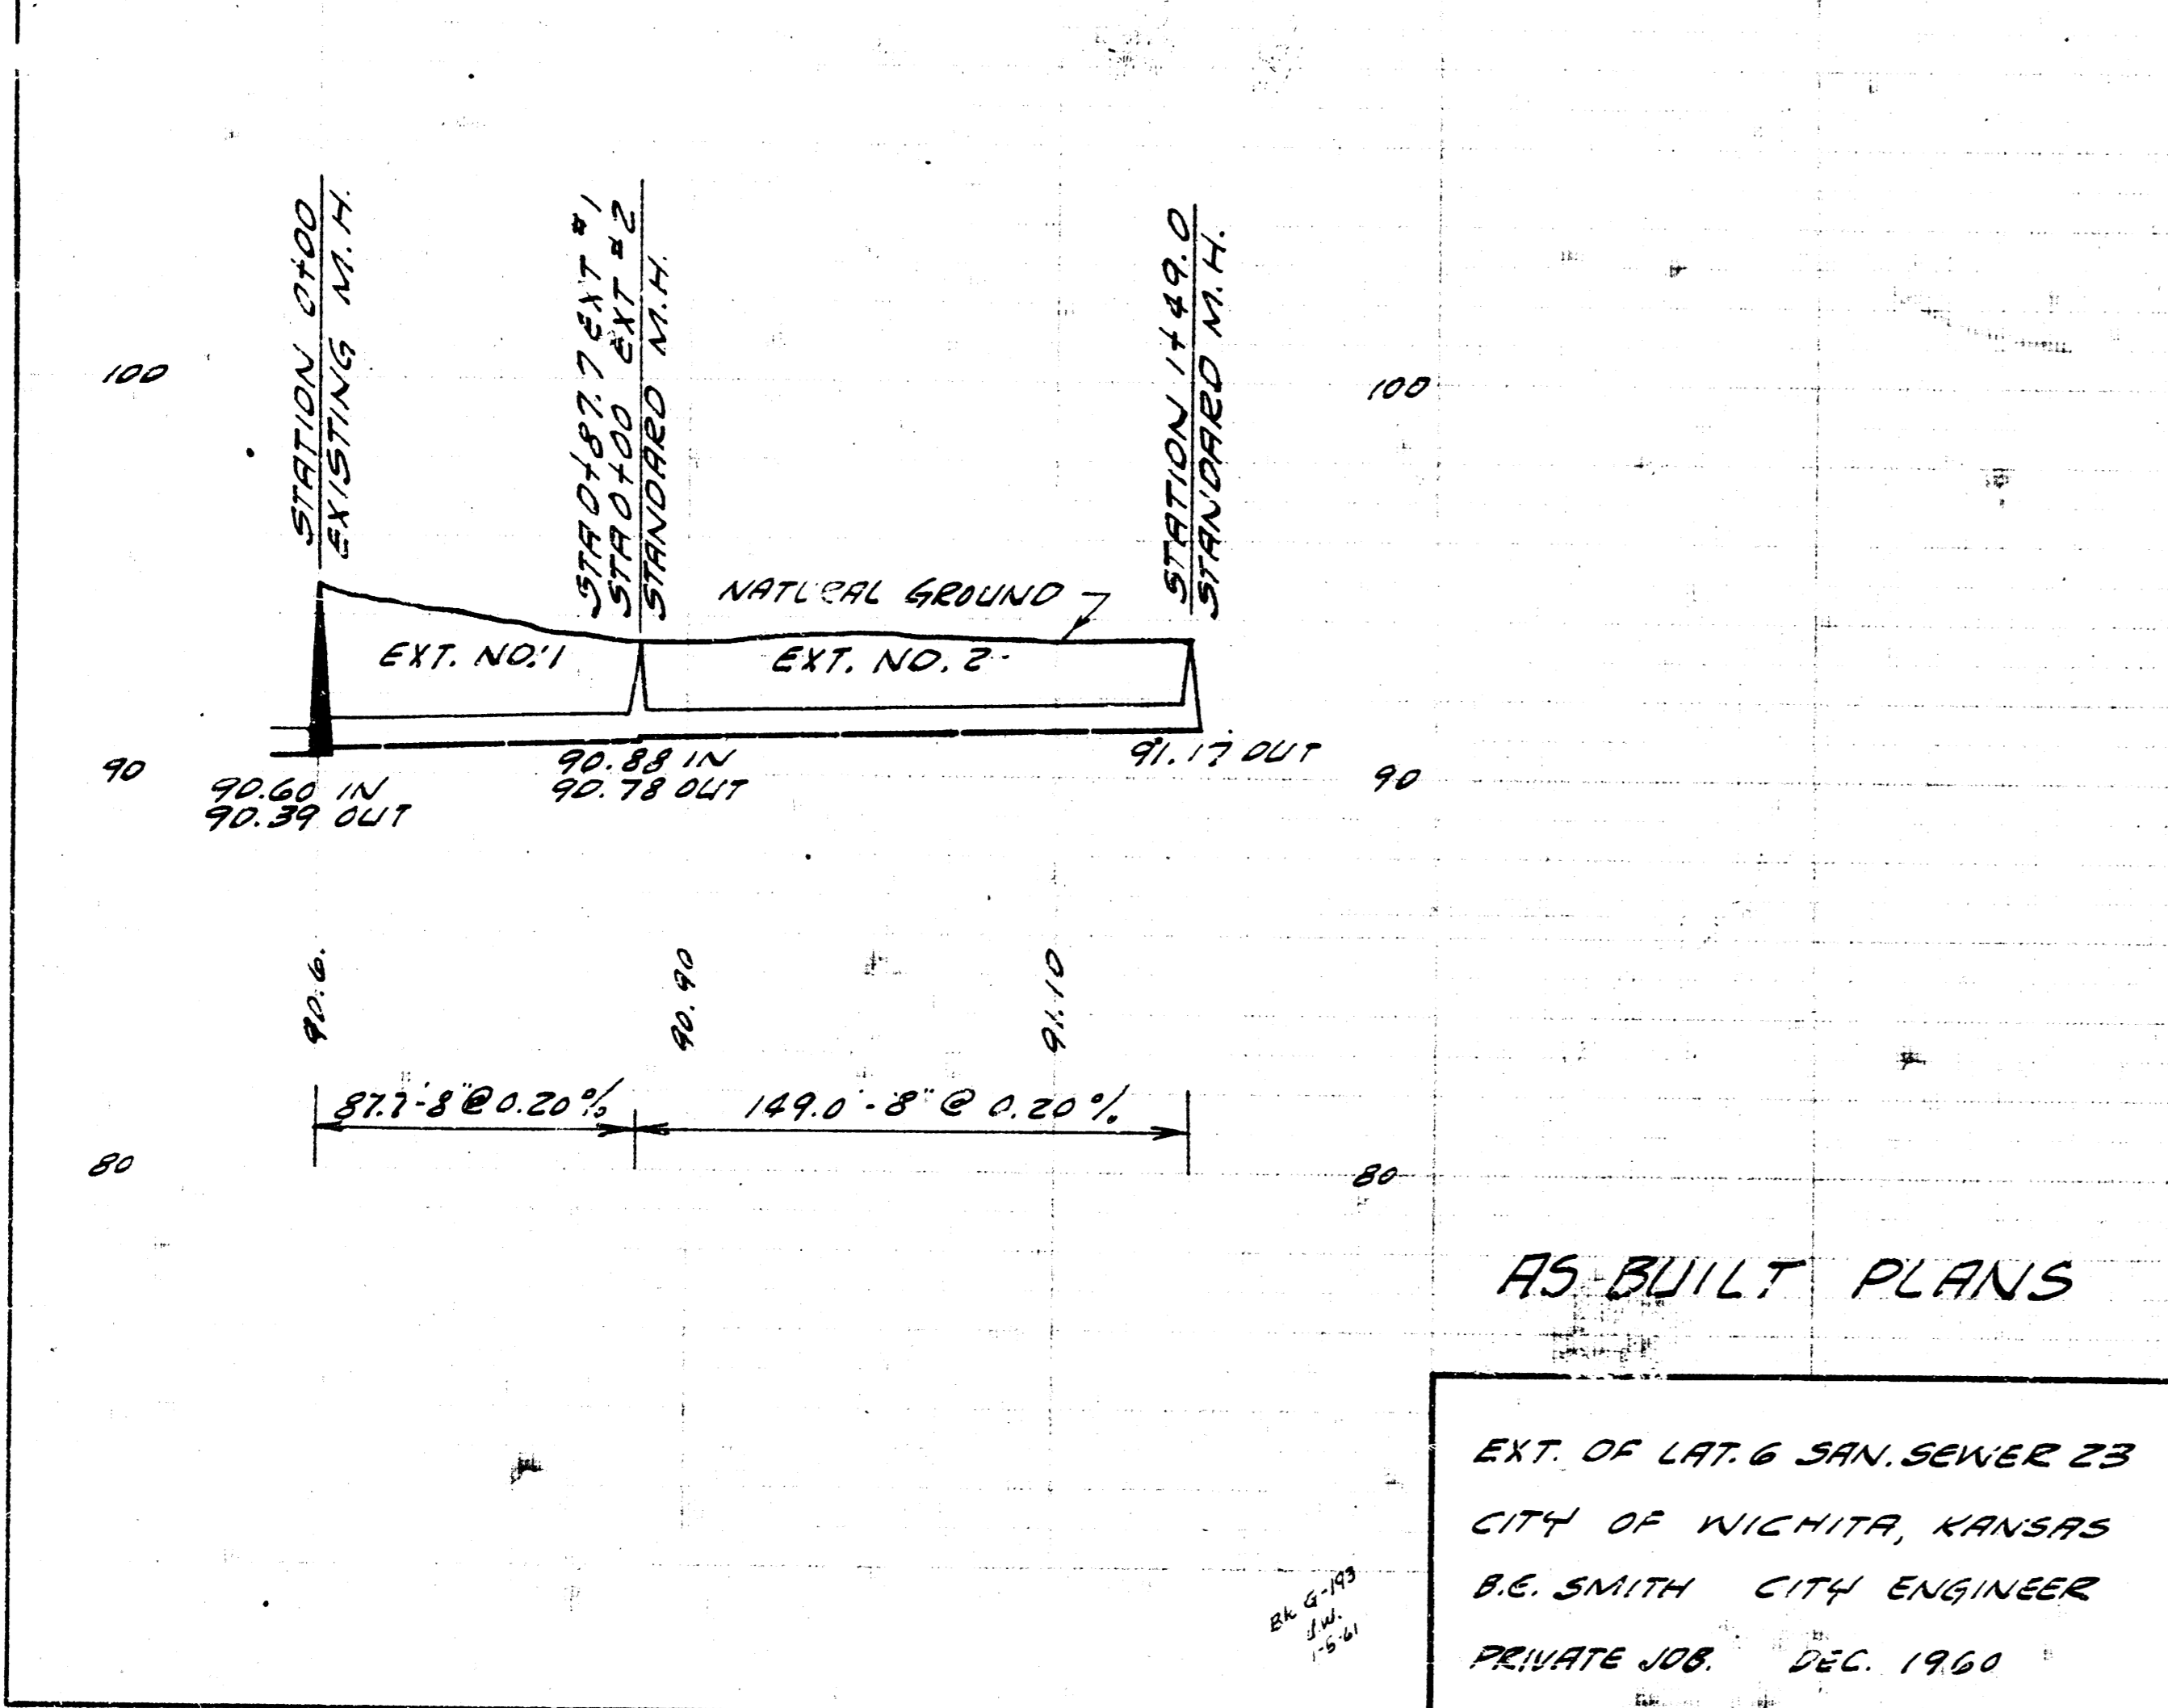 STATION 0+00
EXISTING M.H.
STA 0+87.7 EXT #1
STA 0+00 EXT #2
STANDARD M.H.
STATION 1+49.0
STANDARD M.H.
100
100
NATURAL GROUND
EXT. NO. 1
EXT. NO. 2
90
90.60 IN
90.39 OUT
90.88 IN
90.78 OUT
91.17 OUT
90
90.6
90.90
91.10
87.7'-8"@0.20%
149.0'-8"@ 0.20%
80
80
AS-BUILT PLANS
EXT. OF LAT. 6 SAN. SEWER 23
CITY OF WICHITA, KANSAS
B.E. SMITH CITY ENGINEER
PRIVATE JOB. DEC. 1960
BK G-193
J.W.
1-5-61